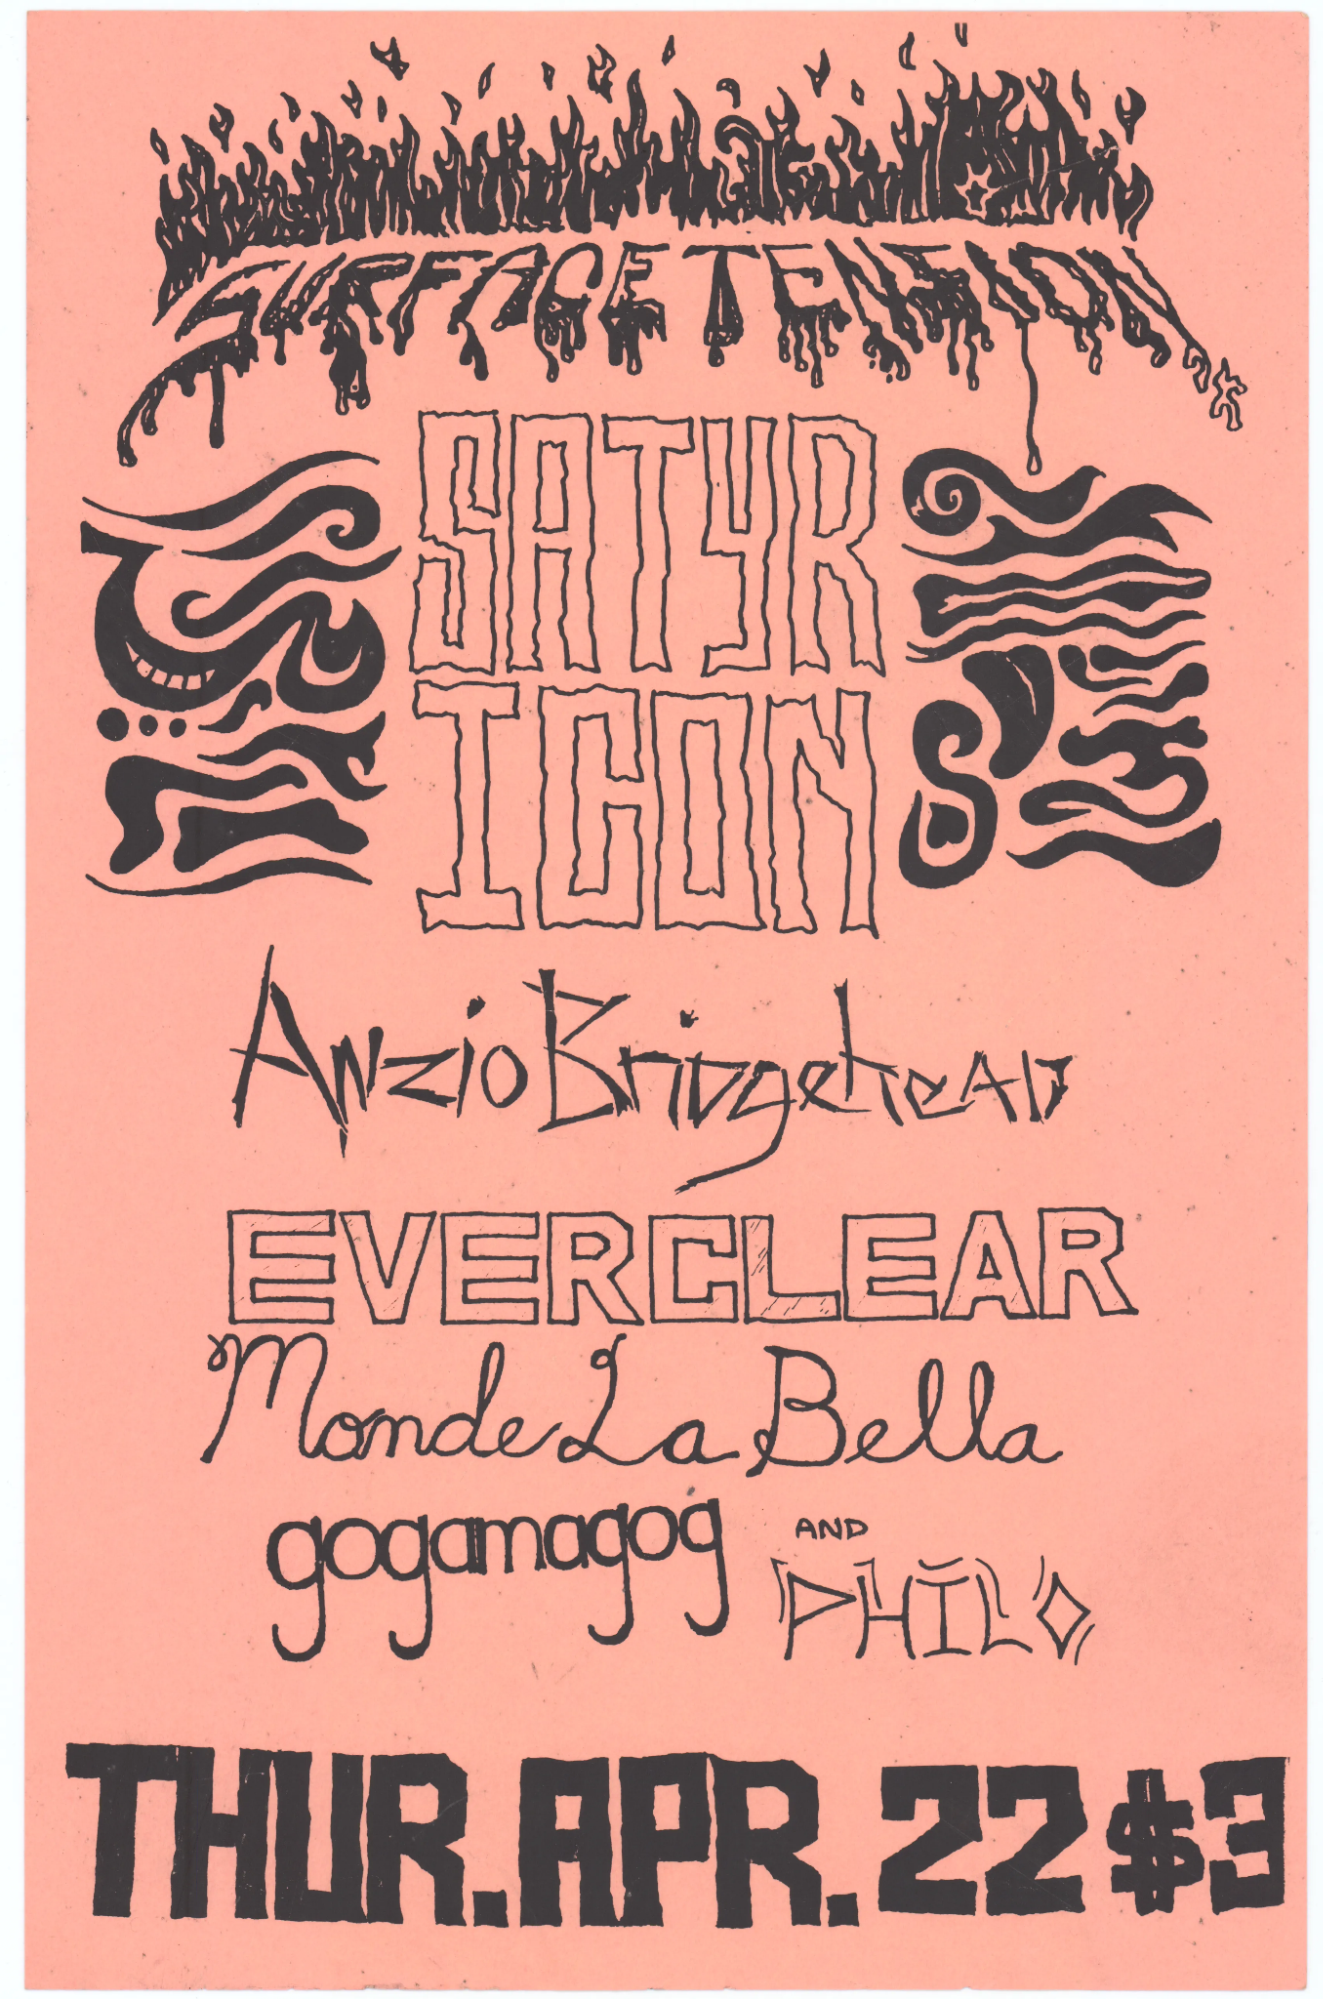 SURFACE TENSION
SATYR
ICON
Anzio Bridgehead
EVERCLEAR
Monde La Bella
gogamagog AND PHILO
THUR. APR. 22 $3